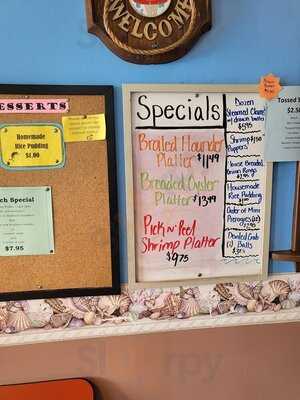 WELCOME
DESSERTS
Homemade
Rice Pudding
$1.00
Special
$7.95
Specials
Broiled Flounder
Platter $11.49
Breaded Oyster
Platter $13.49
Pick n' Peel
Shrimp Platter
$9.75
Dozen
Steamed Clams
w/ drawn butter
$5.95
Shrimp
Poppers
House Breaded
Onion Rings
Homemade
Rice Pudding
Order of Mini
Deviled Crab
Balls
Tossed